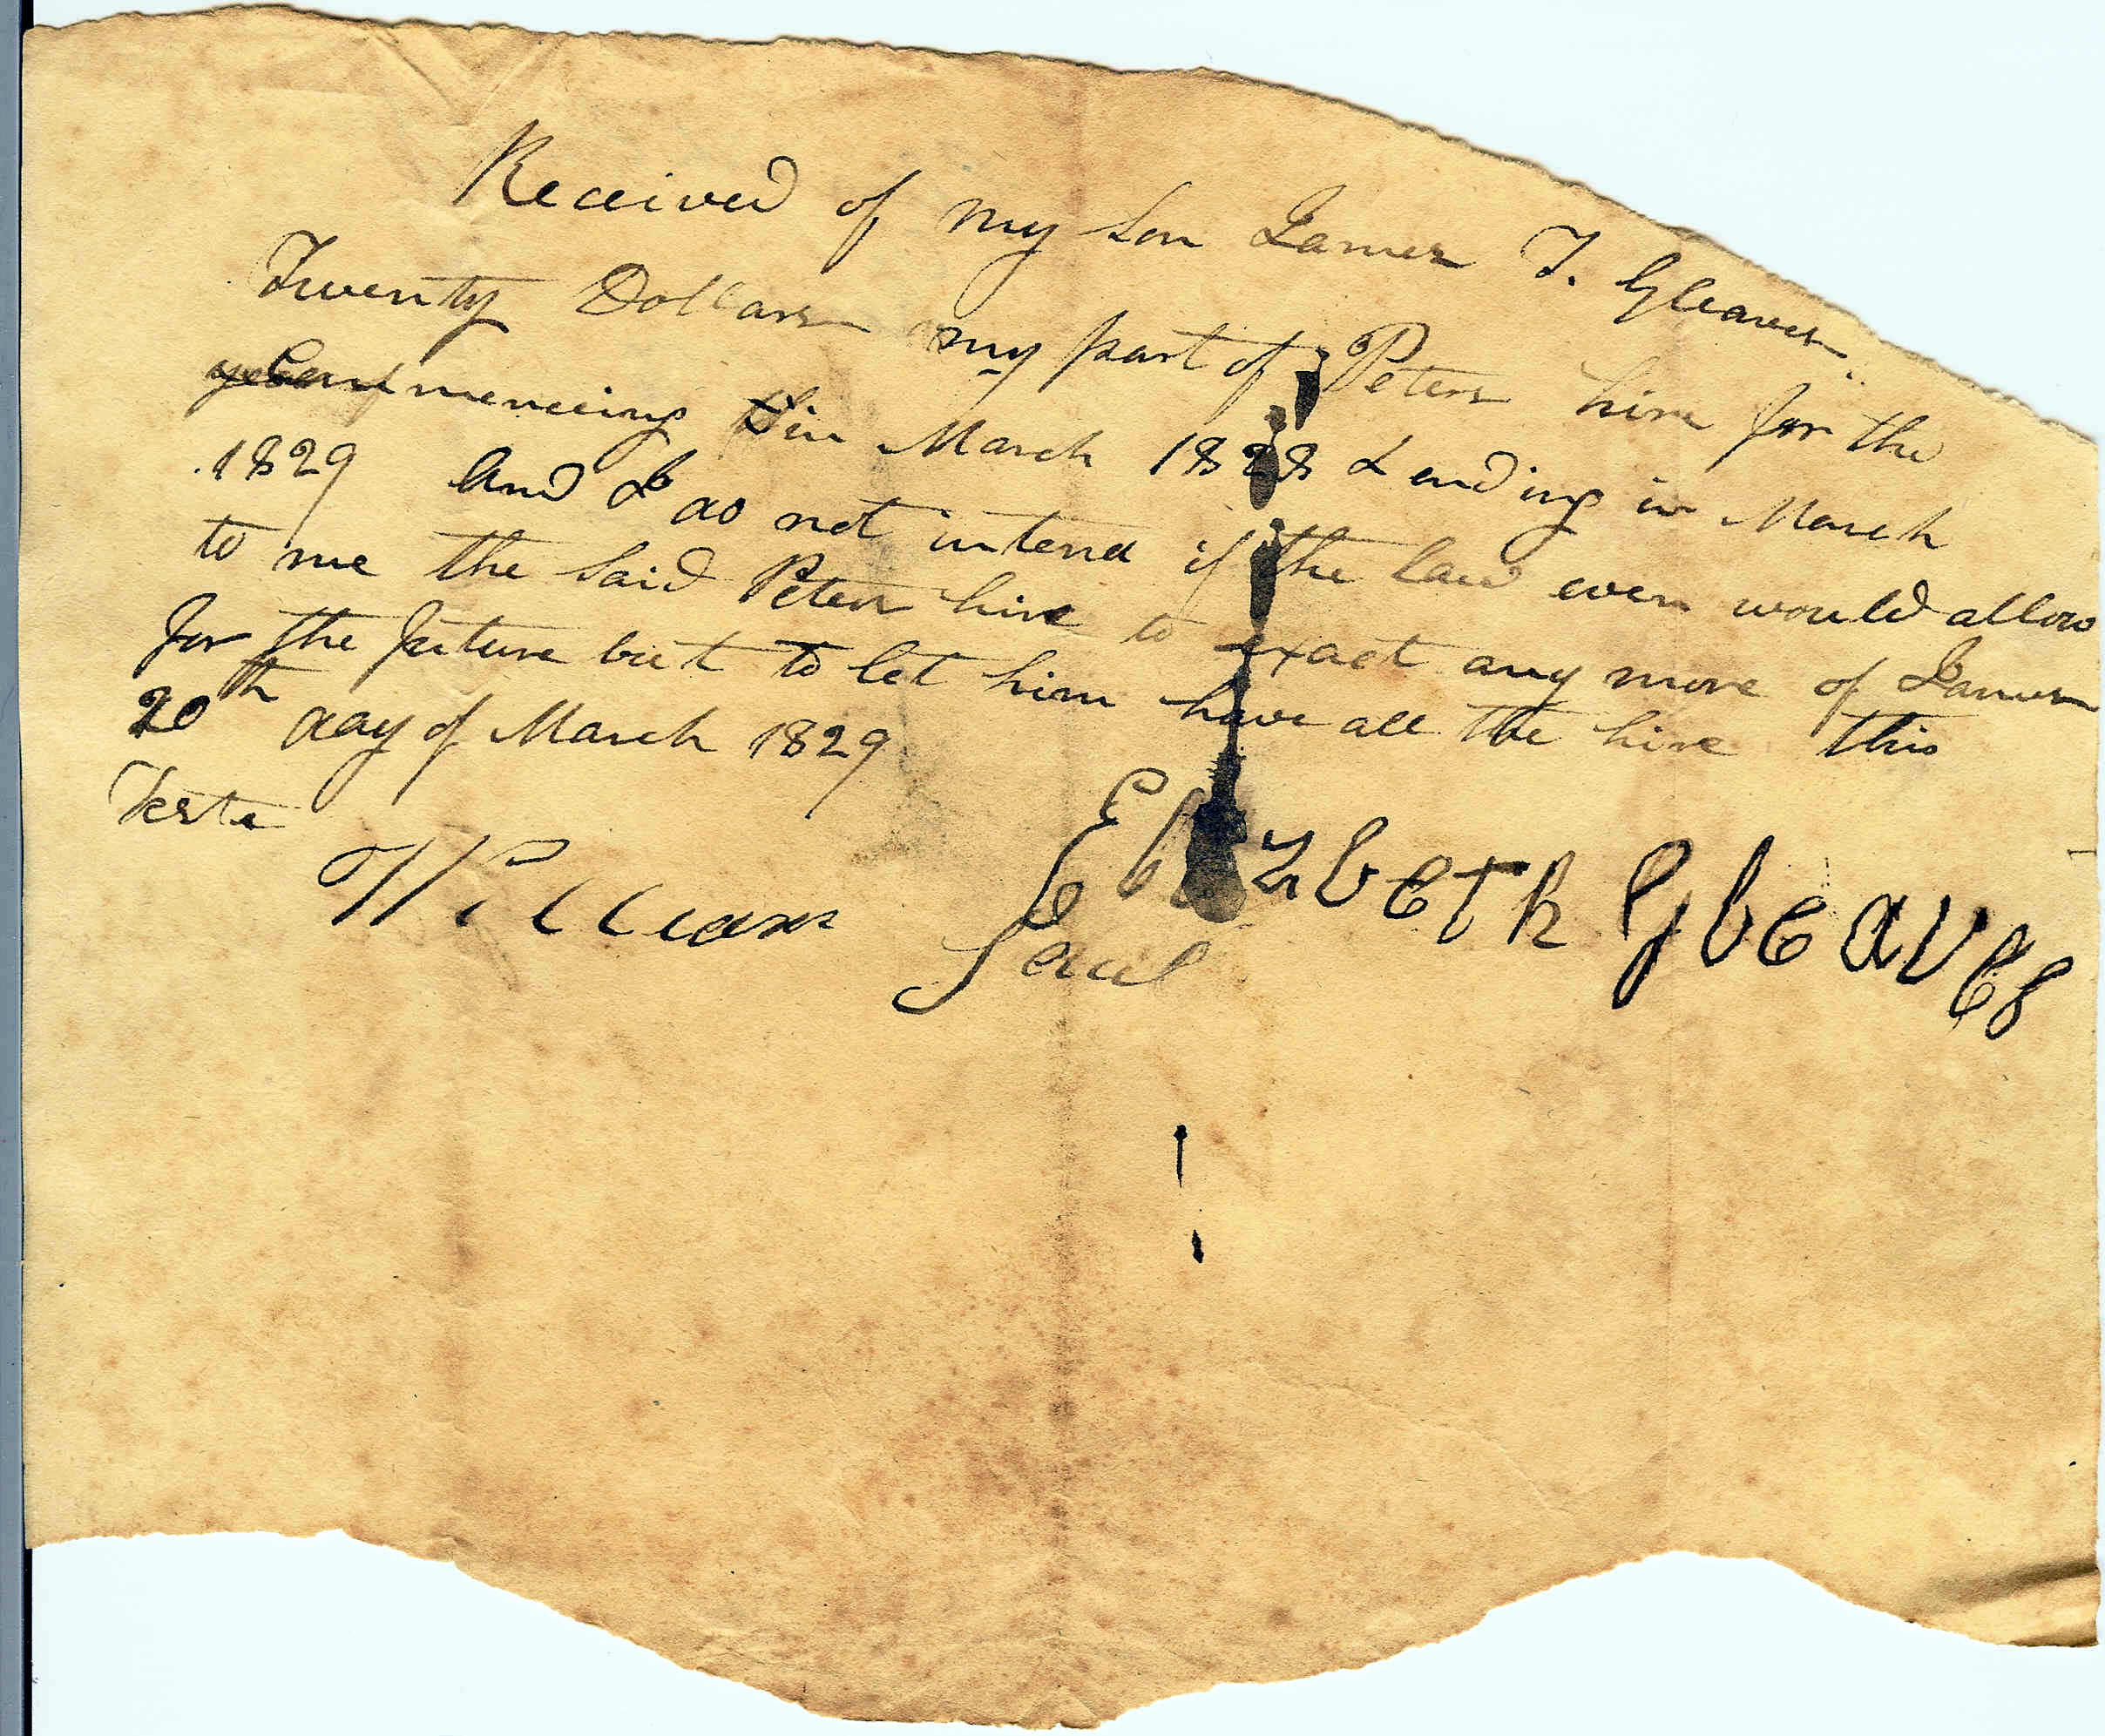 Received of my son James T. Gleaves
Twenty Dollars my part of Peters hire for the
Commencing in March 1828 & ending in March
1829 And I do not intend if the law even would allow
to me the said Peters hire to exact any more of James
for the future but to let him have all the hire this
20th day of March 1829
Teste
Elizbeth Gleaves
William Saul